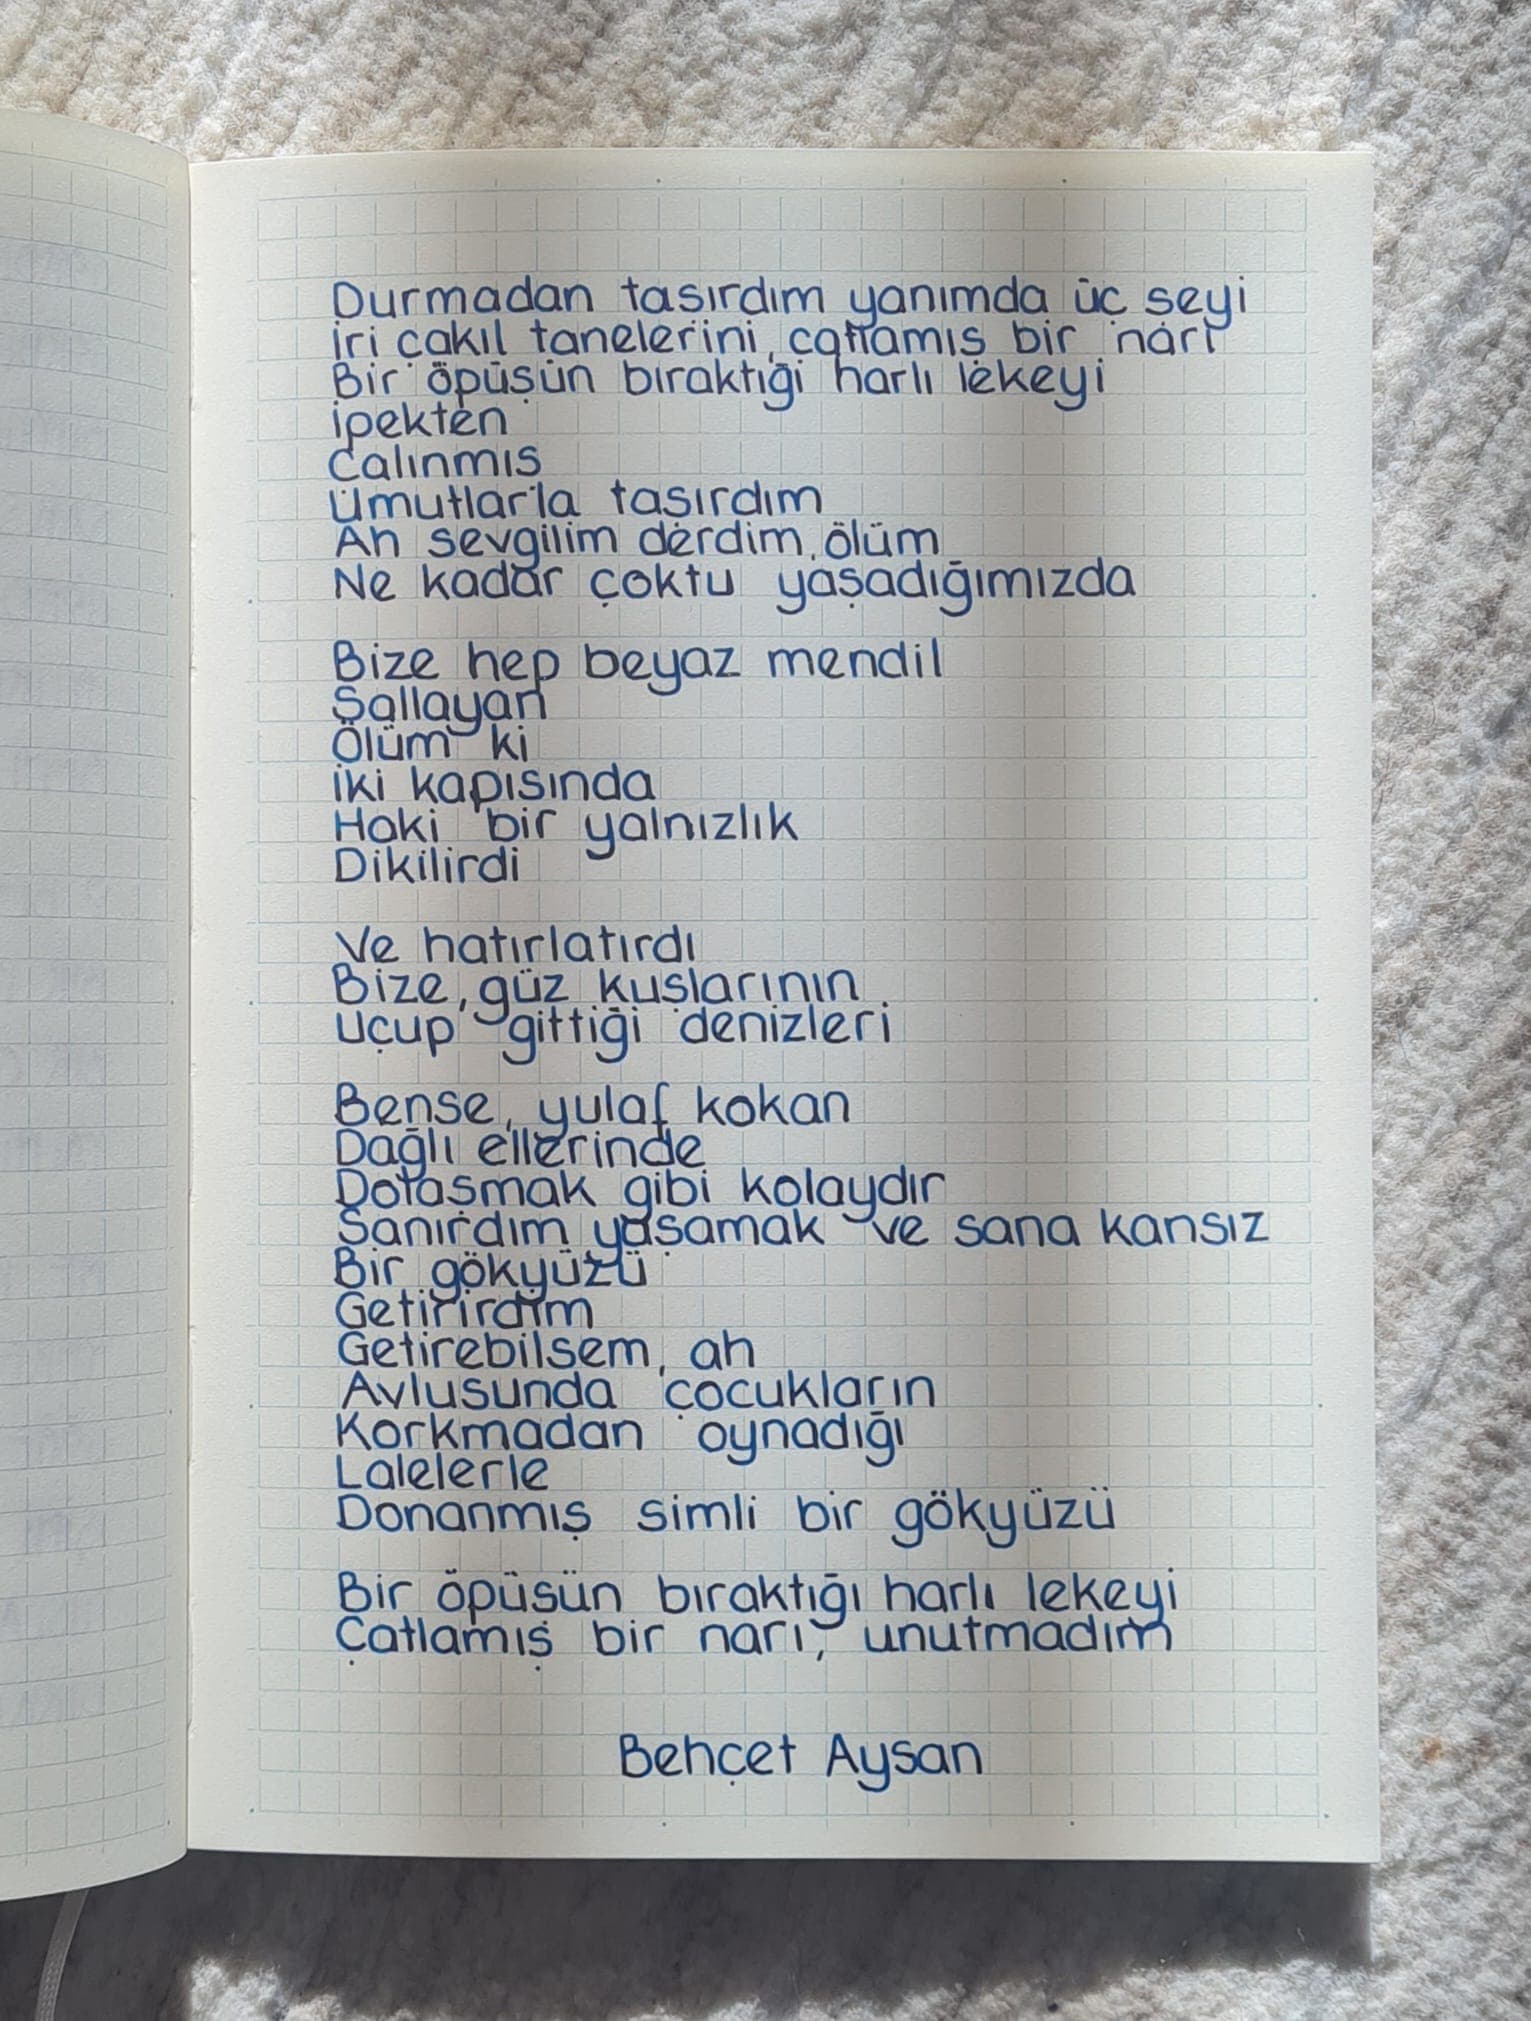 Durmadan taşırdım yanımda üç şeyi
İri çakıl tanelerini, çatlamış bir narı
Bir öpüşün bıraktığı harlı lekeyi
İpekten
Çalınmış
Umutlarla taşırdım
Ah sevgilim derdim, ölüm
Ne kadar çoktu yaşadığımızda
Bize hep beyaz mendil
Sallayan
Ölüm ki
İki kapısında
Haki bir yalnızlık
Dikilirdi
Ve hatırlatırdı
Bize, güz kuşlarının
Uçup gittiği denizleri
Bense, yulaf kokan
Dağlı ellerinde
Dolaşmak gibi kolaydır
Sanırdım yaşamak ve sana kansız
Bir gökyüzü
Getirirdim
Getirebilsem, ah
Avlusunda çocukların
Korkmadan oynadığı
Lalelerle
Donanmış simli bir gökyüzü
Bir öpüşün bıraktığı harlı lekeyi
Çatlamış bir narı, unutmadım
Behçet Aysan